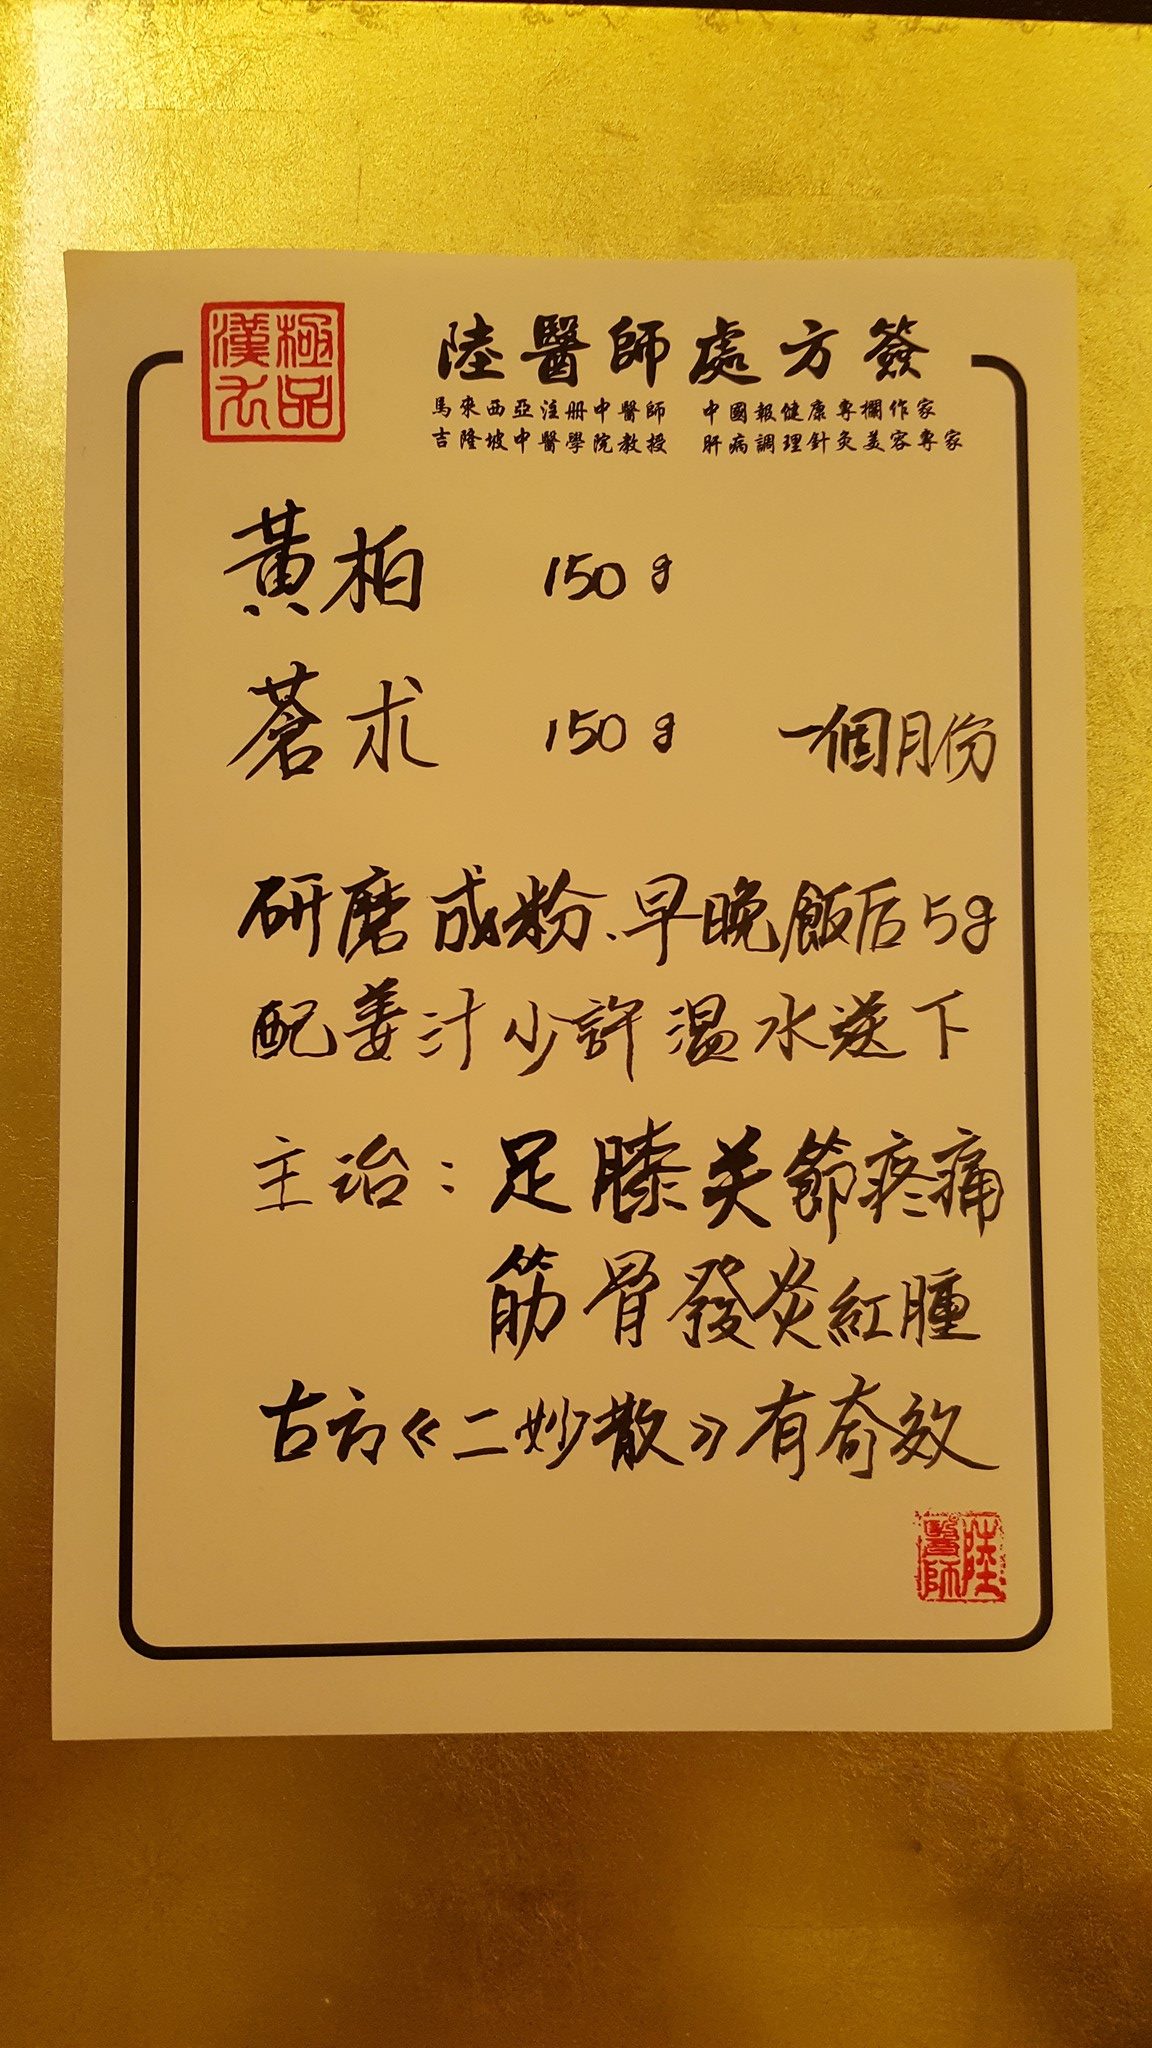 極品
漢方
陸醫師處方簽
馬來西亞注冊中醫師 中國報健康專欄作家
吉隆坡中醫學院教授 肝病調理針灸美容專家
黃柏 150g
蒼术 150g 一個月份
研磨成粉、早晚飯后5g
配姜汁少許溫水送下
主治：足膝关節疼痛
筋骨發炎紅腫
古方《二妙散》有奇效
陸醫師